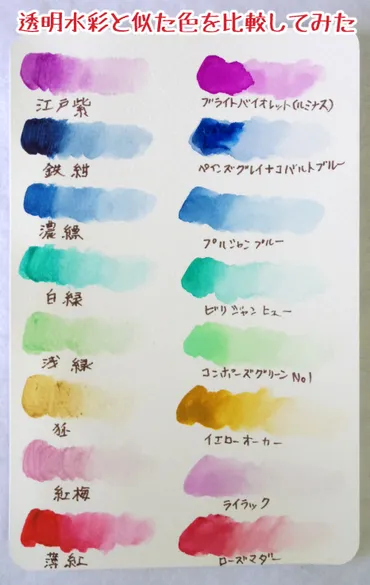 透明水彩と似た色を比較してみた
江戸紫
ブライトバイオレット(ルミナス)
鉄紺
ペインズグレイ+コバルトブルー
濃縹
プルシャンブルー
白緑
ビリジャンヒュー
浅緑
コンポーズグリーンNo1
イエローオーカー
紅梅
ライラック
薄紅
ローズマダー